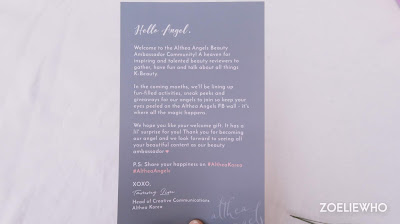 Hello Angel,
Welcome to the Althea Angels Beauty
Ambassador Community! A heaven for
inspiring and talented beauty reviewers to
gather, have fun and talk about all things
K-Beauty.
In the coming months, we'll be lining up
fun-filled activities, sneak peeks and
giveaways for our angels to join so keep your
eyes peeled on the Althea Angels FB wall - it's
where all the magic happens.
We hope you like your welcome gift. It has a
lil' surprise for you! Thank you for becoming
our angel and we look forward to seeing all
your beautiful content as our beauty
ambassador ♥
P.S: Share your happiness on #AltheaKorea
#AltheaAngels
XOXO,
Head of Creative Communications
Althea Korea
althea
ZOELIEWHO